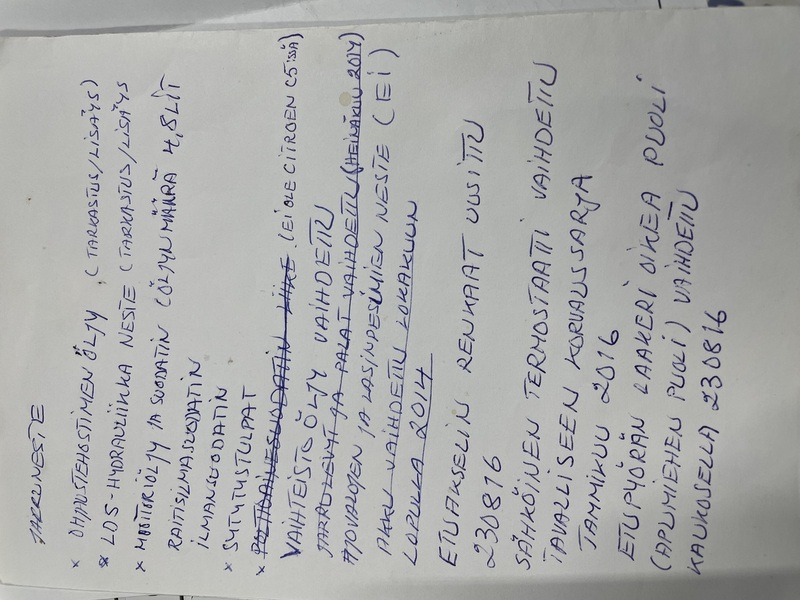 JARRUNESTE
x OHJAUSTEHOSTIMEN ÖLJY (TARKASTUS/LISÄYS)
x LDS-HYDRAULIIKKA NESTE (TARKASTUS/LISÄYS
x MOOTTORIÖLJY JA SUODATIN (ÖLJYN MÄÄRÄ 4,8LIT
RAITISILMASUODATIN
ILMANSUODATIN
x SYTYTUSTULPAT
x POLTTOAINESUODATIN LIIKE (EI OLE CITROEN C5:ISSÄ)
VAIHTEISTOÖLJY VAIHDETTU
JARRULEVYT JA PALAT VAIHDETTU (HEINÄKUU 2014)
AJOVALOJEN JA LASINPESIMIEN NESTE (EI)
AKKU VAIHDETTU LOKAKUUN
LOPULLA 2014
ETUAKSELIN RENKAAT UUSITTU
230816
SÄHKÖINEN TERMOSTAATTI VAIHDETTU
TAVALLISEEN KORVAUSSARJA
TAMMIKUU 2016
ETUPYÖRÄN LAAKERI OIKEA PUOLI
(APUMIEHEN PUOLI) VAIHDETTU
KAUKOSELLA 230816